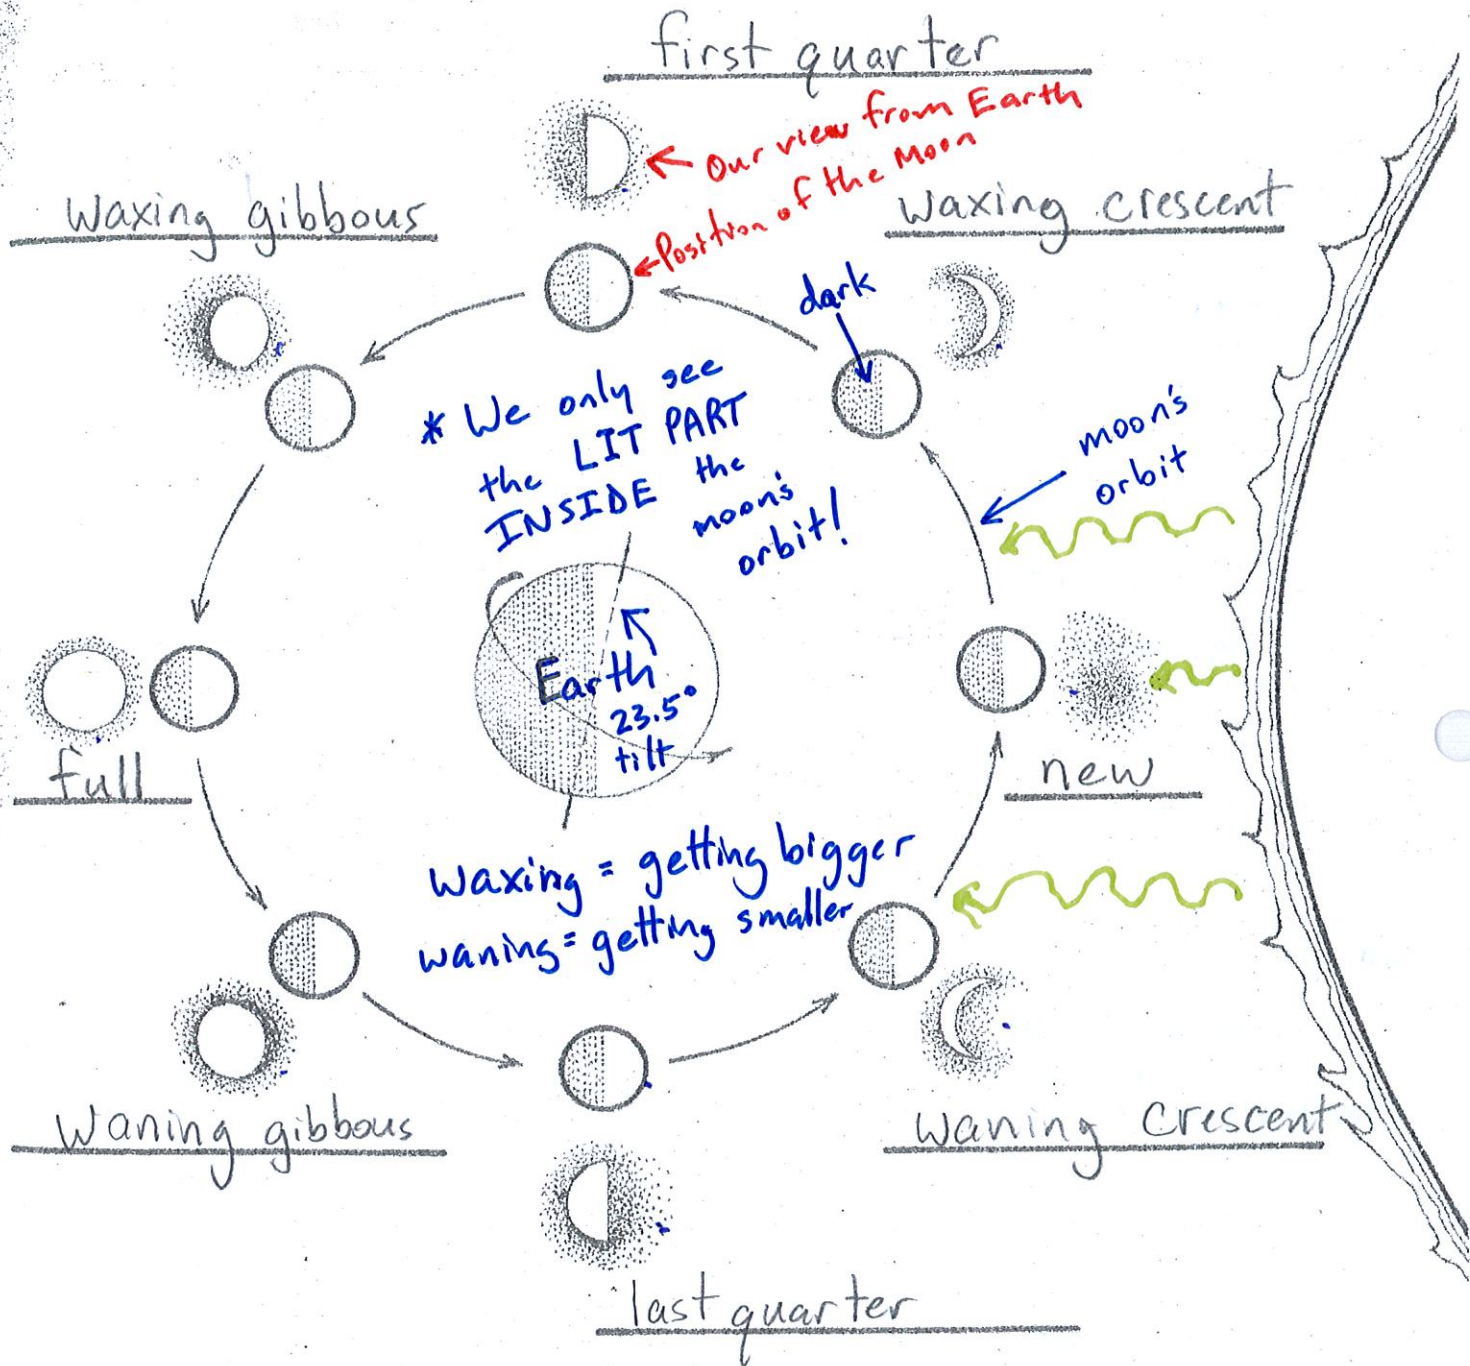 first quarter
Our view from Earth
Position of the Moon
waxing gibbous
waxing crescent
dark
* We only see
the LIT PART
INSIDE the
moon's
orbit!
moon's
orbit
Earth
23.5°
tilt
full
new
waxing = getting bigger
waning = getting smaller
waning gibbous
waning crescent
last quarter